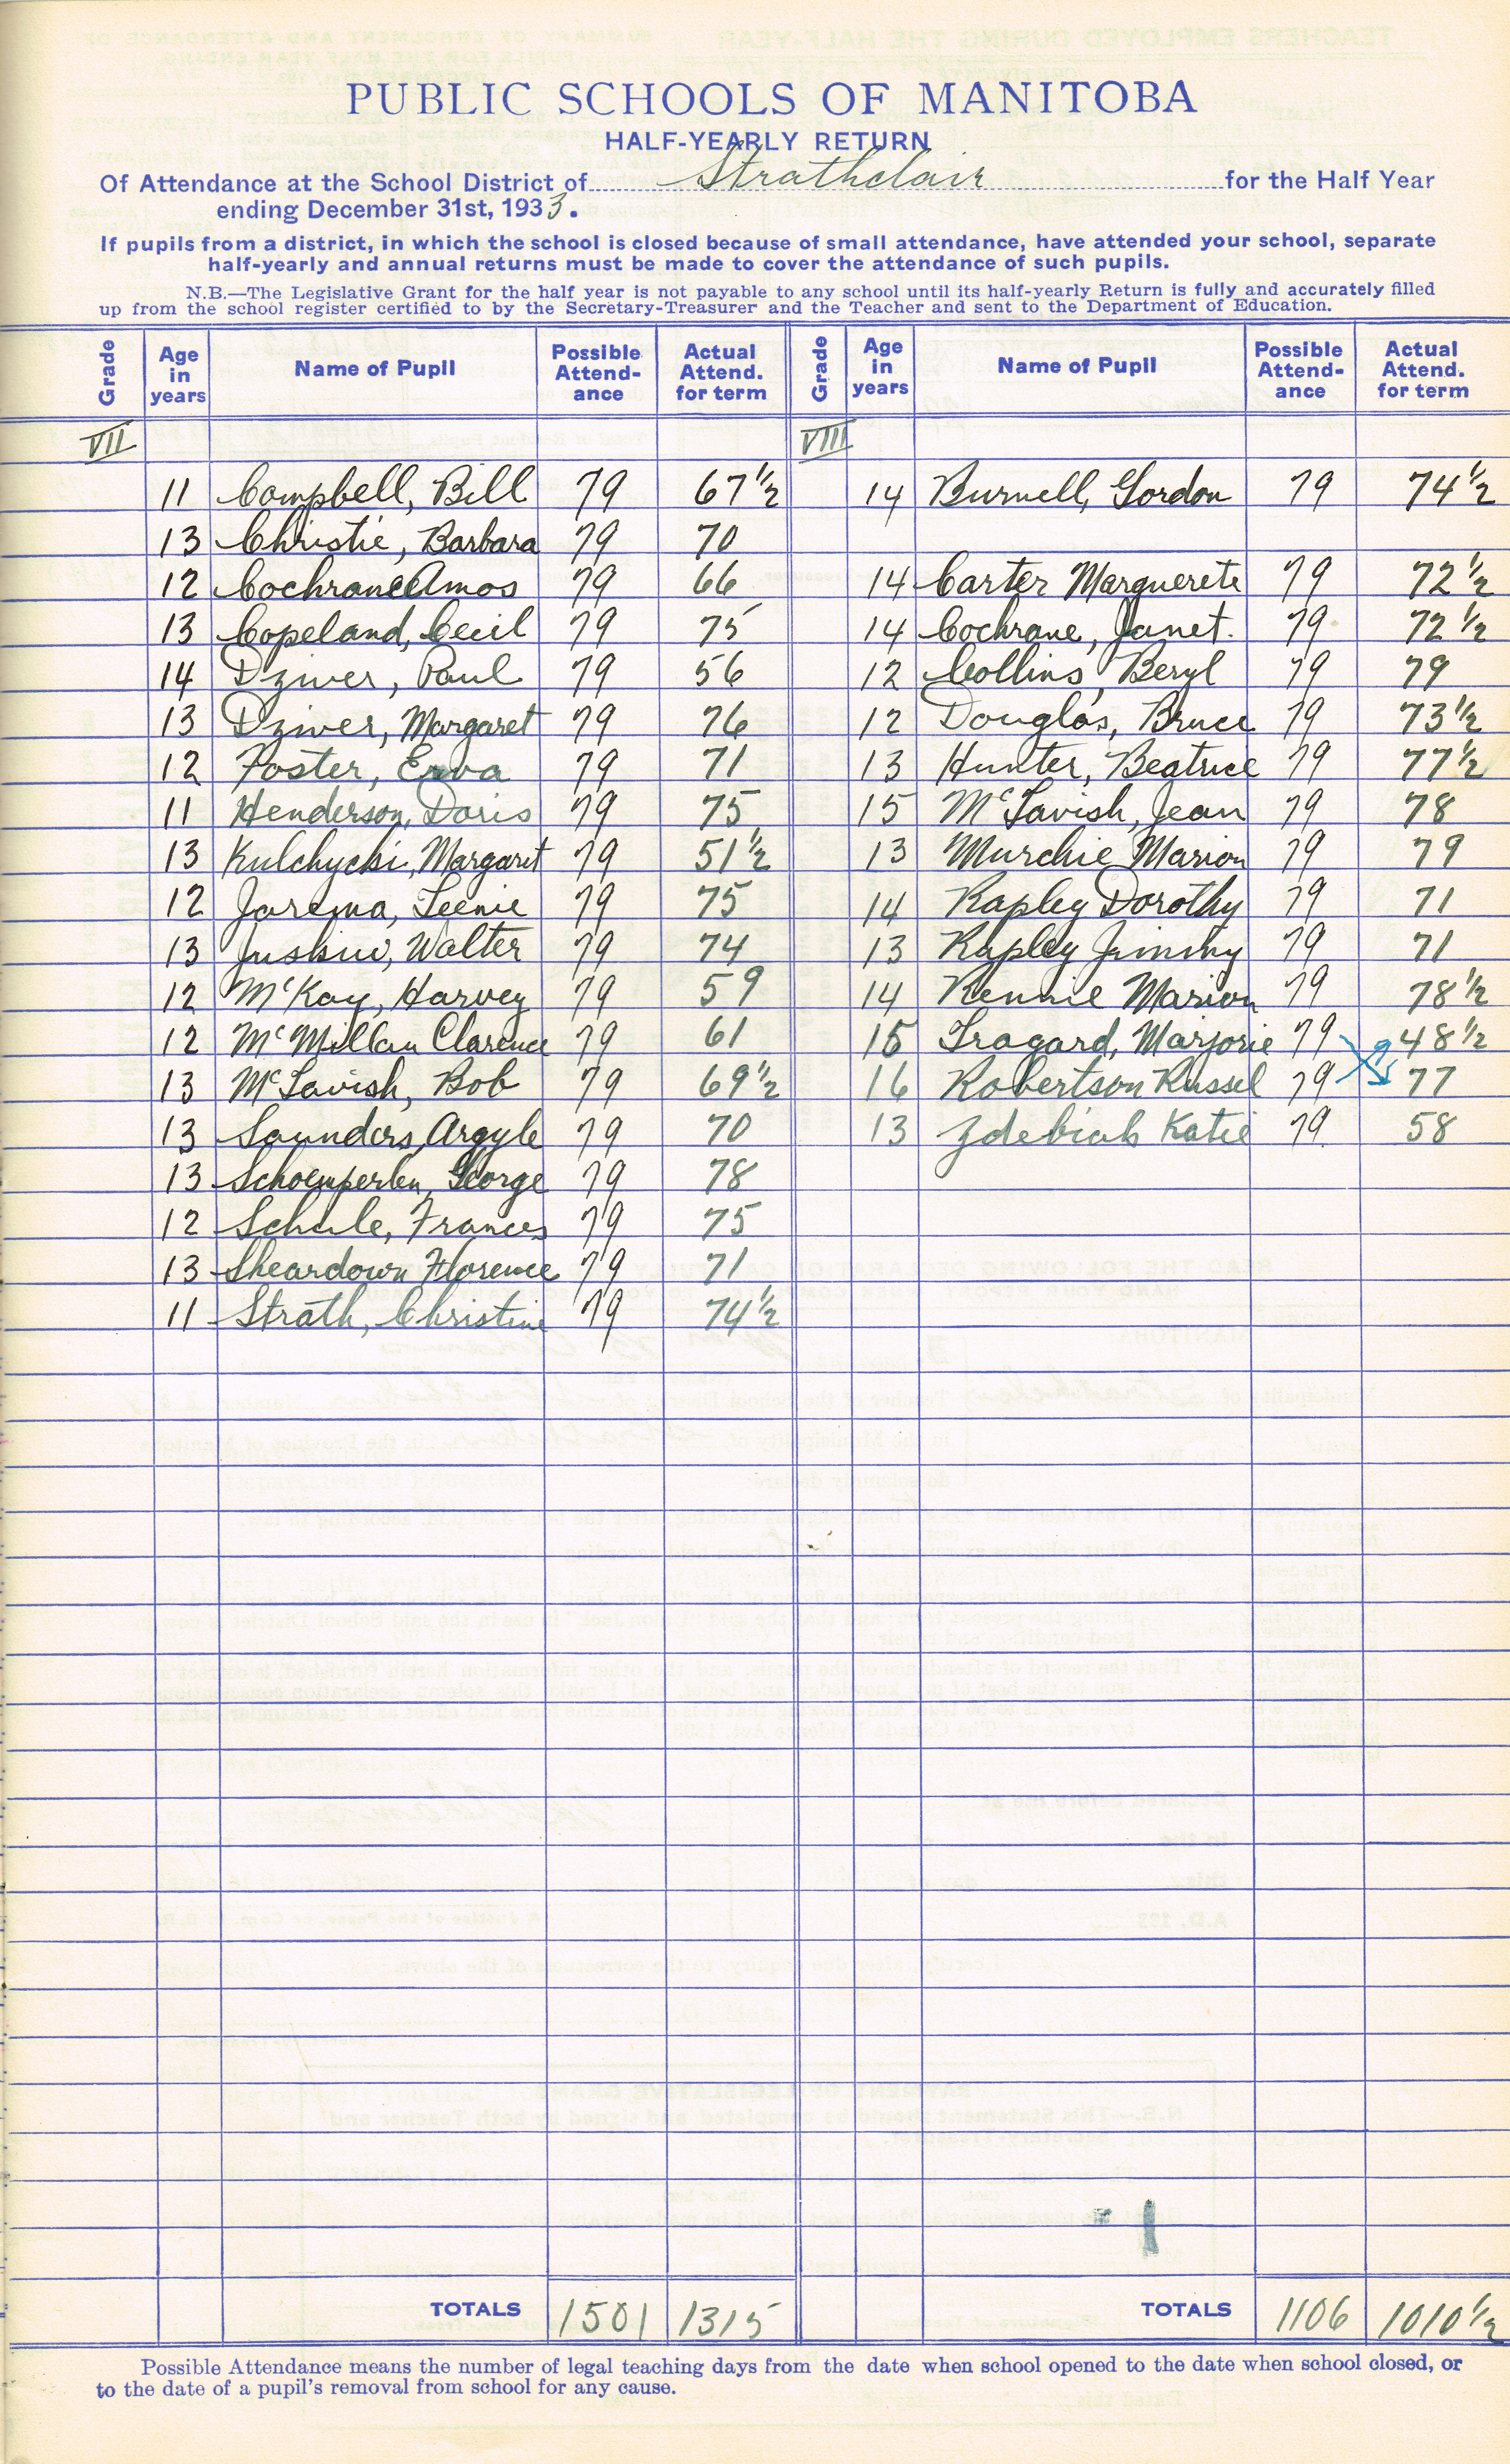 PUBLIC SCHOOLS OF MANITOBA
HALF-YEARLY RETURN
Of Attendance at the School District of Strathclair for the Half Year
ending December 31st, 1933.
If pupils from a district, in which the school is closed because of small attendance, have attended your school, separate
half-yearly and annual returns must be made to cover the attendance of such pupils.
N.B.—The Legislative Grant for the half year is not payable to any school until its half-yearly Return is fully and accurately filled
up from the school register certified to by the Secretary-Treasurer and the Teacher and sent to the Department of Education.
Grade Age in years Name of Pupil Possible Attend-ance Actual Attend. for term Grade Age in years Name of Pupil Possible Attend-ance Actual Attend. for term
VII VIII
11 Campbell, Bill 79 67 1/2 14 Burnell, Gordon 79 74 1/2
13 Christie, Barbara 79 70
12 Cochrane Amos 79 66 14 Carter Marguerete 79 72 1/2
13 Copeland, Cecil 79 75 14 Cochrane, Janet. 79 72 1/2
14 Dziver, Paul 79 56 12 Collins, Beryl 79 79
13 Dziver, Margaret 79 76 12 Douglas, Bruce 79 73 1/2
12 Foster, Erva 79 71 13 Hunter, Beatrice 79 77 1/2
11 Henderson, Doris 79 75 15 McTavish, Jean 79 78
13 Kulchycki, Margaret 79 51 1/2 13 Murchie Marion 79 79
12 Jarema, Leenie 79 75 14 Rapley Dorothy 79 71
13 Juskiw, Walter 79 74 13 Rapley Jimmy 79 71
12 McKay, Harvey 79 59 14 Rennie Marion 79 78 1/2
12 McMillan Clarence 79 61 15 Tragard, Marjorie 79 48 1/2
13 McTavish, Bob 79 69 1/2 16 Robertson Russel 79 77
13 Saunders, Argyle 79 70 13 Zdebiak Katie 79 58
13 Schoenperlen, George 79 78
12 Schule, Frances 79 75
13 Sheardown Florence 79 71
11 Strath, Christine 79 74 1/2
TOTALS 1501 1315 TOTALS 1106 1010 1/2
Possible Attendance means the number of legal teaching days from the date when school opened to the date when school closed, or
to the date of a pupil's removal from school for any cause.